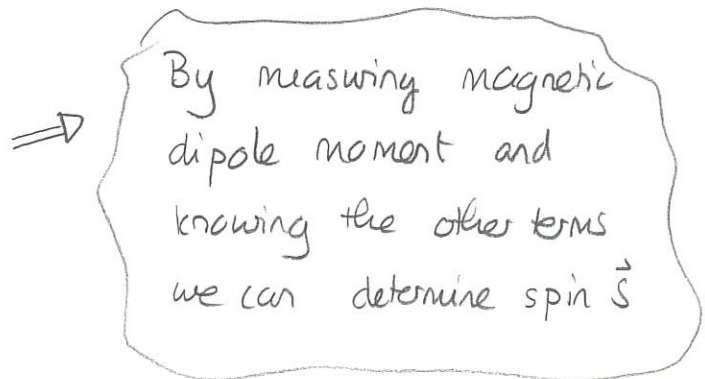 ⇒ By measuring magnetic
dipole moment and
knowing the other terms
we can determine spin s⃗